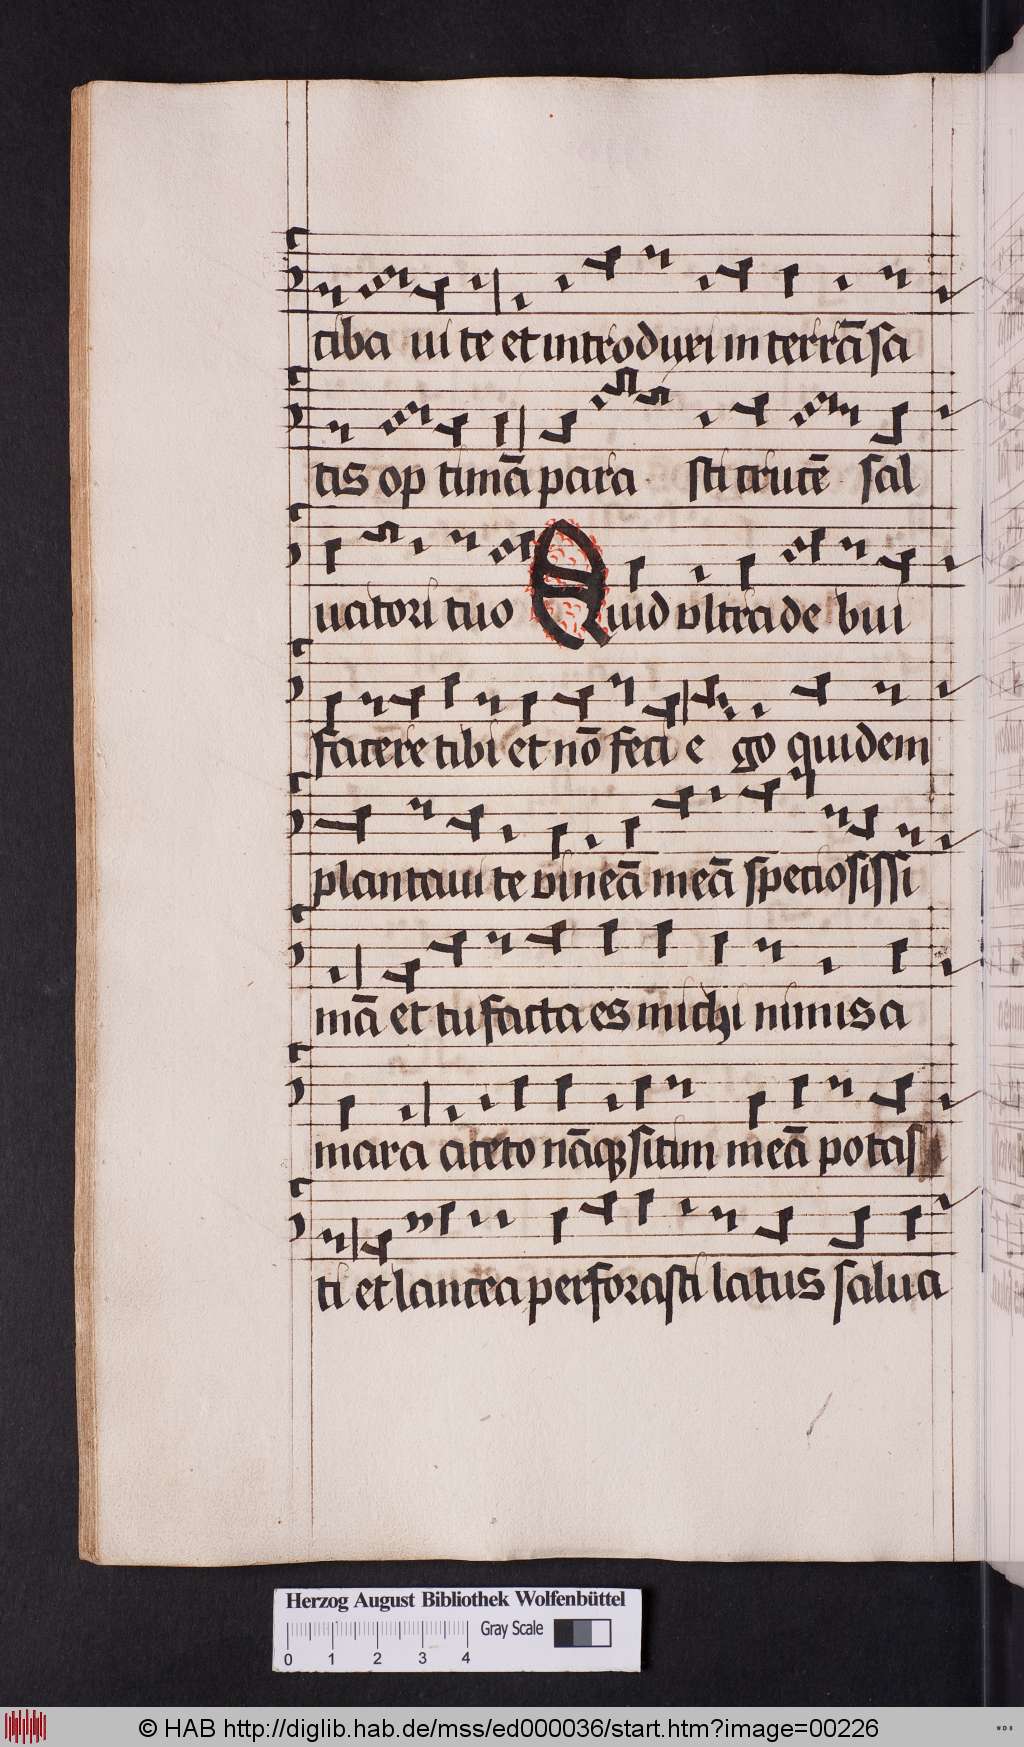 tiba ui te et introduxi in terrā sa
tis op timā para sti crucē sal
uatori tuo Quid vltra de bui
facere tibi et nō feci e go quidem
plantaui te vineā meā speciosissi
mā et tu facta es michi nimis a
mara aceto nāq sitim meā potas
ti et lancea perforasti latus salua
Herzog August Bibliothek Wolfenbüttel
Gray Scale
0 1 2 3 4
© HAB http://diglib.hab.de/mss/ed000036/start.htm?image=00226